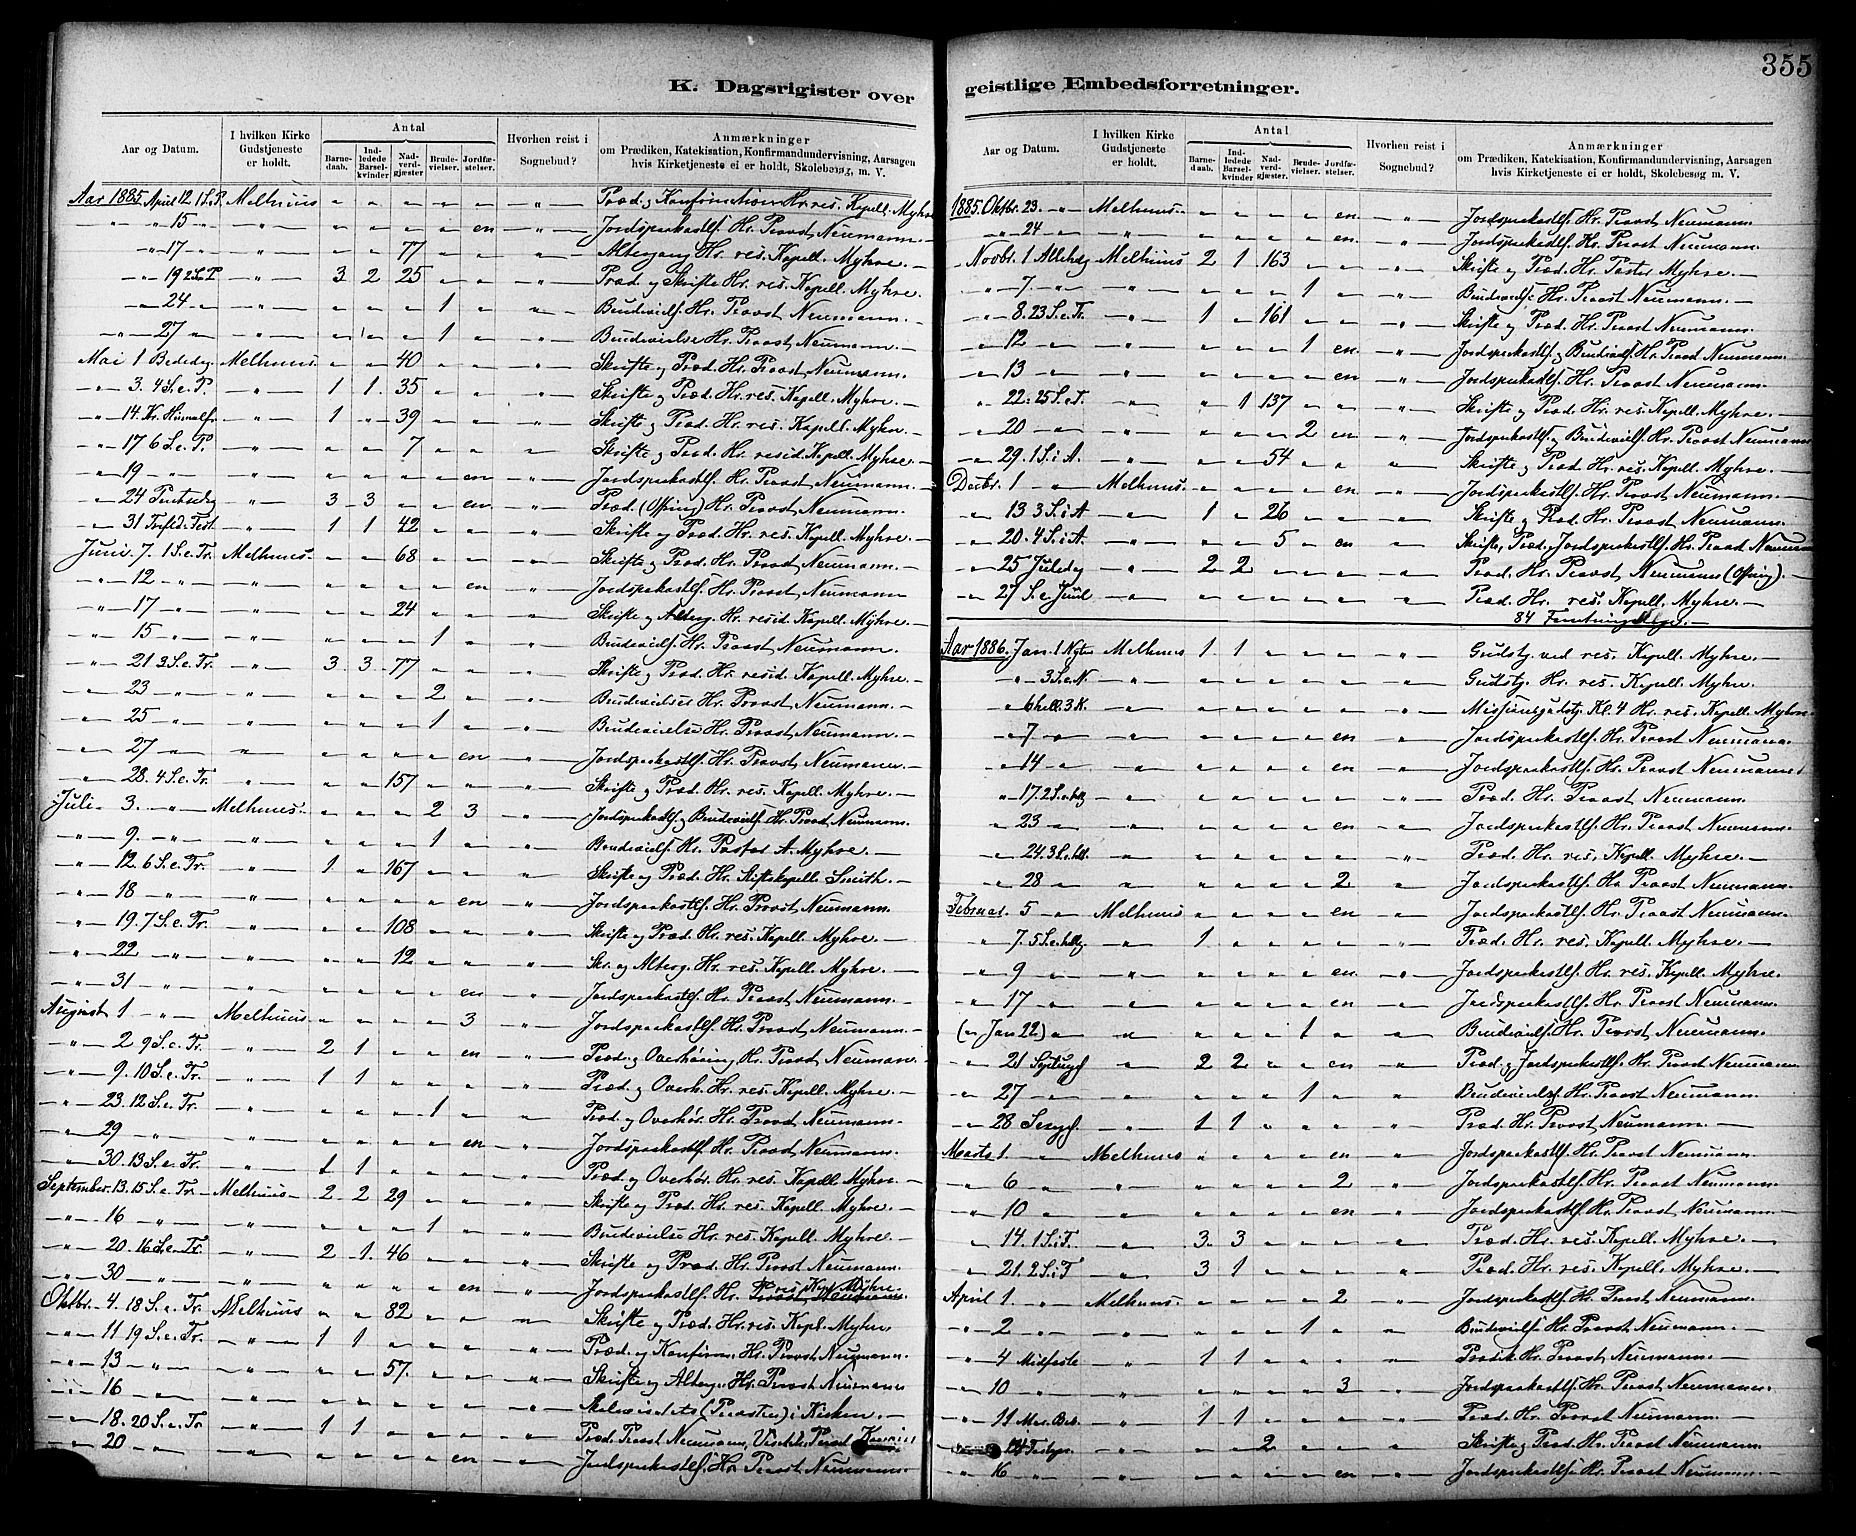 355
K. Dagsrigister over
Aar og Datum. I hvilken Kirke Gudstjeneste er holdt. Antal Barnedaab. Indledede Barselkvinder Nadverdgjæster Brudevielser. Jordfæstelser. Hvorhen reist i Sognebud? Anmærkninger om Prædiken, Katekisation, Konfirmandundervisning, Aarsagen hvis Kirketjeneste ei er holdt, Skolebesøg, m. V.
Aar 1885. April 12 1 S. P. Melhuus " " " " " " Præd. og Konfirmation Hr. res. Kapell. Myhre
" 15 " " " " " " en " Jordspaakastls. Hr. Provst Neumann.
" 17 " " " " 77 " " " Altergang Hr. res. Kapell. Myhre.
" 19 2 S. P. " 3 2 25 " " " Præd. og Skrifte Hr. res. Kapell. Myhre.
" 24 " " " " " 1 " " Brudevielse Hr. Provst Neumann.
" 27 " " " " " 1 " " Brudevielse Hr. Provst Neumann.
Mai 1 Bededag Melhuus " " 40 " " " Skrifte og Præd. Hr. Provst Neumann.
" 3. 4 S. e. P. " 1 1. 35 " " " Skrifte og Præd. Hr. res. Kapell. Myhre.
" 14. Kr. Himmelf. " 1 " 39 " " " Skrifte og Præd. Hr. res. Kapell. Myhre.
" 17 6 S. e. P. " " " 7 " " " Skrifte og Præd. Hr. resid. Kapell. Myhre.
" 19 " " " " " " en " Jordspaakastls. Hr. Provst Neumann.
" 24 Pintsedag " 3 3 " " en " Præd. (Offring) Hr. Provst Neumann.
" 31 Trefold. Fest " 1 1 42 " " " Skrifte og Præd. Hr. res. Kapell. Myhre.
Juni 7. 1 S. e. Tr. Melhuus " " 68 " " " Skrifte og Præd. Hr. Provst Neumann.
" 12 " " " " " " en " Jordspaakastls. Hr. Provst Neumann
" 17 " " " " 24 " " " Skrifte og Alterg. Hr. resid. Kapell. Myhre.
" 15 " " " " " 1 " " Brudevielse Hr. Provst Neumann.
" 21 3. S. e. Tr. " 3 3 77 " " " Skrifte og Præd. Hr. resid. Kapell. Myhre.
" 23 " " " " " 2 " " Brudevielser Hr. Provst Neumann.
" 25 " " " " " 1 " " Brudevielse Hr. Provst Neumann.
" 27 " " " " " " en " Jordspaakastls. Hr. Provst Neumann
" 28. 4 S. e. Tr. " " " 157 " " " Skrifte og Præd. Hr. res. Kapell. Myhre.
Juli 3. " Melhuus " " " 2 3 " Jordspaakastls. og Brudeviels. Hr. Provst Neumann.
" 9. " " " " " 1 " " Brudeviels. Hr. Pastor A. Myhre.
" 12. 6 S. e. Tr. " 1 " 167 " " " Skrifte og Præd. Hr. Stiftskapell. Smith.
" 18 " " " " " " en " Jordspaakastls. Hr. Provst Neumann.
" 19. 7 S. e. Tr. " " " 108 " " " Skrifte og Præd. Hr. res. Kapell. Myhre.
" 22 " " " " 12 " " " Skr. og Alterg. Hr. res. Kapell. Myhre.
" 31 " " " " " " en " Jordspaakastls. Hr. Provst Neumann.
August 1 " Melhuus " " " " 3 " Jordspaakastls. Hr. Provst Neumann.
" 2 9 S. e. Tr. " 2 1 " " en " Præd. og Overhøring Hr. Provst Neumann
" 9. 10 S. e. Tr. " 1 1 " " " " Præd. og Overh. Hr. res. Kapell. Myhre.
" 23. 12 S. e. Tr. " " " " 1 " " Præd. og Overhør. Hr. Provst Neumann.
" 29 " " " " " " en " Jordspaakastls. Hr. Provst Neumann.
" 30. 13 S. e. Tr. " 1 1 " " " " Præd. og Overhør. Hr. res. Kapell. Myhre.
September. 13. 15 S. e. Tr. Melhuus 2 2 29 " " " Skrifte og Præd. Hr. res. Kapell. Myhre.
" 16 " " " " " 1 " " Brudevielse Hr. res. Kapell. Myhre.
" 20. 16 S. e. Tr. " 2 1. 46 " " " Skrifte og Præd. Hr. Provst Neumann.
" 30 " " " " " " en " Jordspaakastls. Hr. res. Kap. Myhre.
Oktbr. 4. 18 S. e. Tr. Melhuus " " 82 " " " Skrifte og Præd. Hr. res. Kapl. Myhre
" 11 19 S. e. Tr. " 1 1 " " " " Præd. og Konfirm. Hr. Provst Neumann.
" 13 " " " " 57. " " " Skrifte og Alterg. Hr. Provst Neumann
" 16 " " " " " " " " Skolevisitats (Provsten) i Kirken.
" 18. 20 S. e. Tr. " 1 1 " " " " Præd. Provst Neumann,
" 20 " " " " " " en " Jordspaakastls. Hr. Provst Neumann.
geistlige Embedsforretninger.
Aar og Datum. I hvilken Kirke Gudstjeneste er holdt. Antal Barnedaab. Indledede Barselkvinder Nadverdgjæster. Brudevielser. Jordfæstelser. Hvorhen reist i Sognebud? Anmærkninger om Prædiken, Katekisation, Konfirmandundervisning, Aarsagen hvis Kirketjeneste ei er holdt, Skolebesøg, m. V.
1885. Oktbr. 23. " Melhuus " " " " en " Jordspaakastls. Hr. Provst Neumann.
" 24 " " " " " " en " Jordspaakastls. Hr. Provst Neumann.
Novbr. 1 Allehdg Melhuus 2 1 163 " " " Skrifte og Præd. Hr. Pastor Myhre.
" 7. " " " " " 1 " " Brudevielse Hr. Provst Neumann.
" 8. 23 S. e. Tr. " 1 " 161 " " " Skrifte og Præd. Hr. Provst Neumann.
" 12 " " " " " 1 en " Jordspaakastls. og Brudeviels. Hr. Provst Neumann.
" 13 " " " " " " en " Jordspaakastls. Hr. Provst Neumann.
" 22. 25 S. e. T. " " 1 137 " " " Skrifte og Præd. Hr. res. Kapell. Myhre.
" 20 " " " " " 2 en " Jordspaakastls. og Brudeviels. Hr. Provst Neumann
" 29. 1 S. i A. " " " 54 " " " Skrifte og Præd. Hr. res. Kapell. Myhre.
Decbr. 1 " Melhuus. " " " " en " Jordspaakastls. Hr. Provst Neumann.
" 13 3 S. i A " 1 " 26 " " " Skrifte og Præd. Hr. Provst Neumann.
" 20. 4 S. i A. " " " 5 " en " Skrifte, Præd. og Jordspaakastls. Hr. Provst Neumann
" 25 Juledag " 2 2 " " " " Præd. Hr. Provst Neumann (Offring).
" 27 S. e. Juul " " " " " " " Præd. Hr. res. Kapell. Myhre.
84 Forretningsdage.
Aar 1886. Jan. 1 Nyt. Melhuus 1 1 " " " " Gudstj. ved res. Kapell. Myhre.
" 3 S. e. N " " " " " " " Gudstj. Hr. res. Kapell. Myhre.
" 6 hell. 3 K. " " " " " " " Missionsgudstj. Kl. 4 Hr. res. Kapell. Myhre.
" 7. " " " " " " en " Jordspaakastls. Hr. Provst Neumann.
" 14 " " " " " " en " Jordspaakastls. Hr. Provst Neumann.
" 17. 2 S. e. hllg " " " " " " " Præd. Hr. Provst Neumann.
" 23 " " " " " " en " Jordspaakastls. Hr. Provst Neumann.
" 24. 3 S. e. hll. " " " " " " " Præd. Hr. res. Kapell. Myhre.
" 28 " " " " " " 2 " Jordspaakastls. Hr. Provst Neumann.
Februar. 5 " Melhuus " " " " en " Jordspaakastls. Hr. Provst Neumann.
" 7. 5 S. e. hllg " 1 " " " " " Præd. Hr. res. Kapell. Myhre.
" 9 " " " " " " en " Jordspaakastls. Hr. res. Kapell. Myhre.
" 17 " " " " " " en " Jordspaakastls. Hr. Provst Neumann.
(" Jan 22) " " " " " 1 " " Brudeviels. Hr. Provst Neumann.
" 21 Septuag. " 2 2 " " en " Præd. og Jordspaakastls. Hr. Provst Neumann.
" 27 " " " " " 1 " " Brudevielse Hr. Provst Neumann.
" 28 Sexag. " 1 1 " " " " Præd. Hr. Provst Neumann.
Marts 1. " Melhuus " " " " en " Jordspaakastls. Hr. Provst Neumann.
" 6 " " " " " " 2 " Jordspaakastls. Hr. Provst Neumann.
" 10 " " " " " " en " Jordspaakastls. Hr. Provst Neumann.
" 14. 1 S. i F. " 3. 3 " " " " Præd. Hr. res. Kapell. Myhre.
" 21. 2 S. i F " 3 1 " " " " Præd. Hr. res. Kapell. Myhre.
April 1. " Melhuus. " " " " 2 " Jordspaakastls. Hr. Provst Neumann.
" 2 " " " " " 1 " " Brudeviels. Hr. Provst Neumann.
" 4 Midfaste " 1 1 " " " " Prædik. Hr. Provst Neumann.
" 10 " " " " " " 3 " Jordspaakastls. Hr. Provst Neumann.
" 11 Mar. Beb. " 1 1 " " " " Præd. Hr. Provst Neumann.
" " " " 2 " " " Skrifte og Præd. Hr. Provst Neumann.
" 16 " " " " " " en " Jordspaakastls. Hr. Provst Neumann.